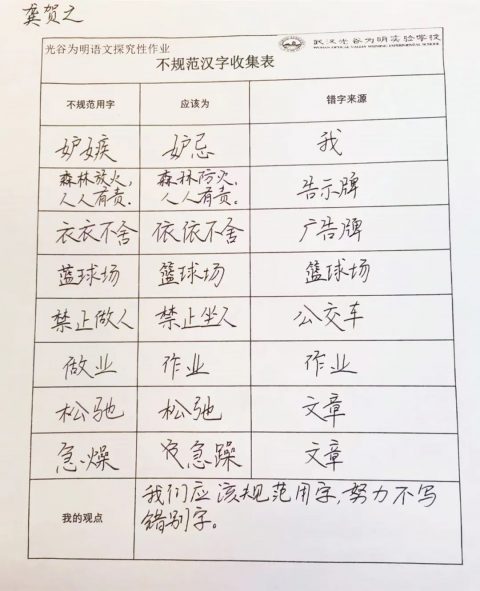 龚贺之
光谷为明语文探究性作业
武汉光谷为明实验学校
WUHAN OPTICAL VALLEY WEIMING EXPERIMENTAL SCHOOL
不规范汉字收集表
不规范用字 应该为 错字来源
妒嫉 妒忌 我
森林放火，人人有责。 森林防火，人人有责。 告示牌
衣衣不舍 依依不舍 广告牌
蓝球场 篮球场 篮球场
禁止做人 禁止坐人 公交车
做业 作业 作业
松驰 松弛 文章
急燥 急躁 文章
我的观点 我们应该规范用字，努力不写
错别字。